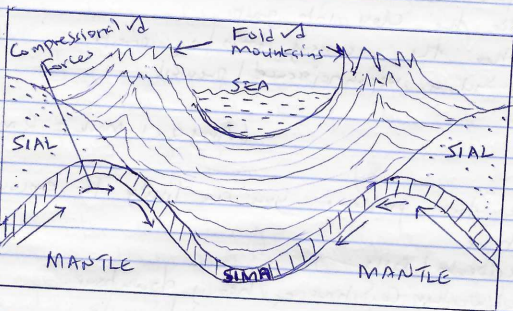 Compressional √d
Forces
Fold √d
Mountains
SEA
SIAL
SIAL
MANTLE
SIMA
MANTLE